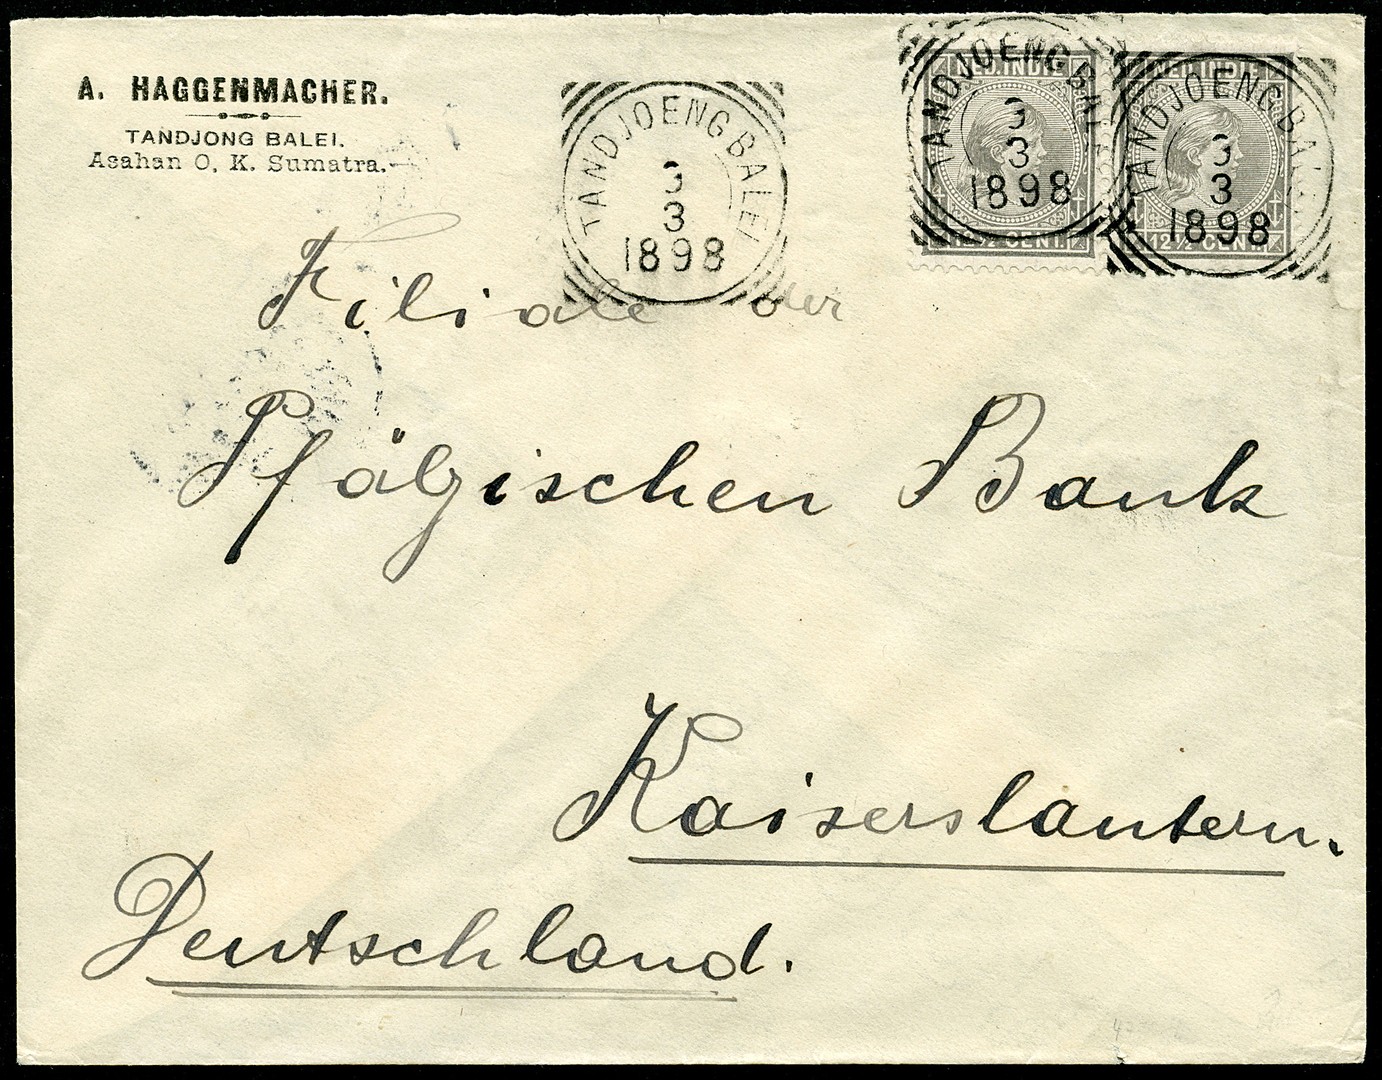 A. HAGGENMACHER.
TANDJONG BALEI.
Asahan O. K. Sumatra.
TANDJOENG BALEI
3
3
1898
NED. INDIE
TANDJOENG BALEI
3
3
1898
12½ CENT.
NED. INDIE
TANDJOENG BALEI
3
3
1898
12½ CENT.
Filiale der
Pfälzischen Bank
Kaiserslautern.
Deutschland.